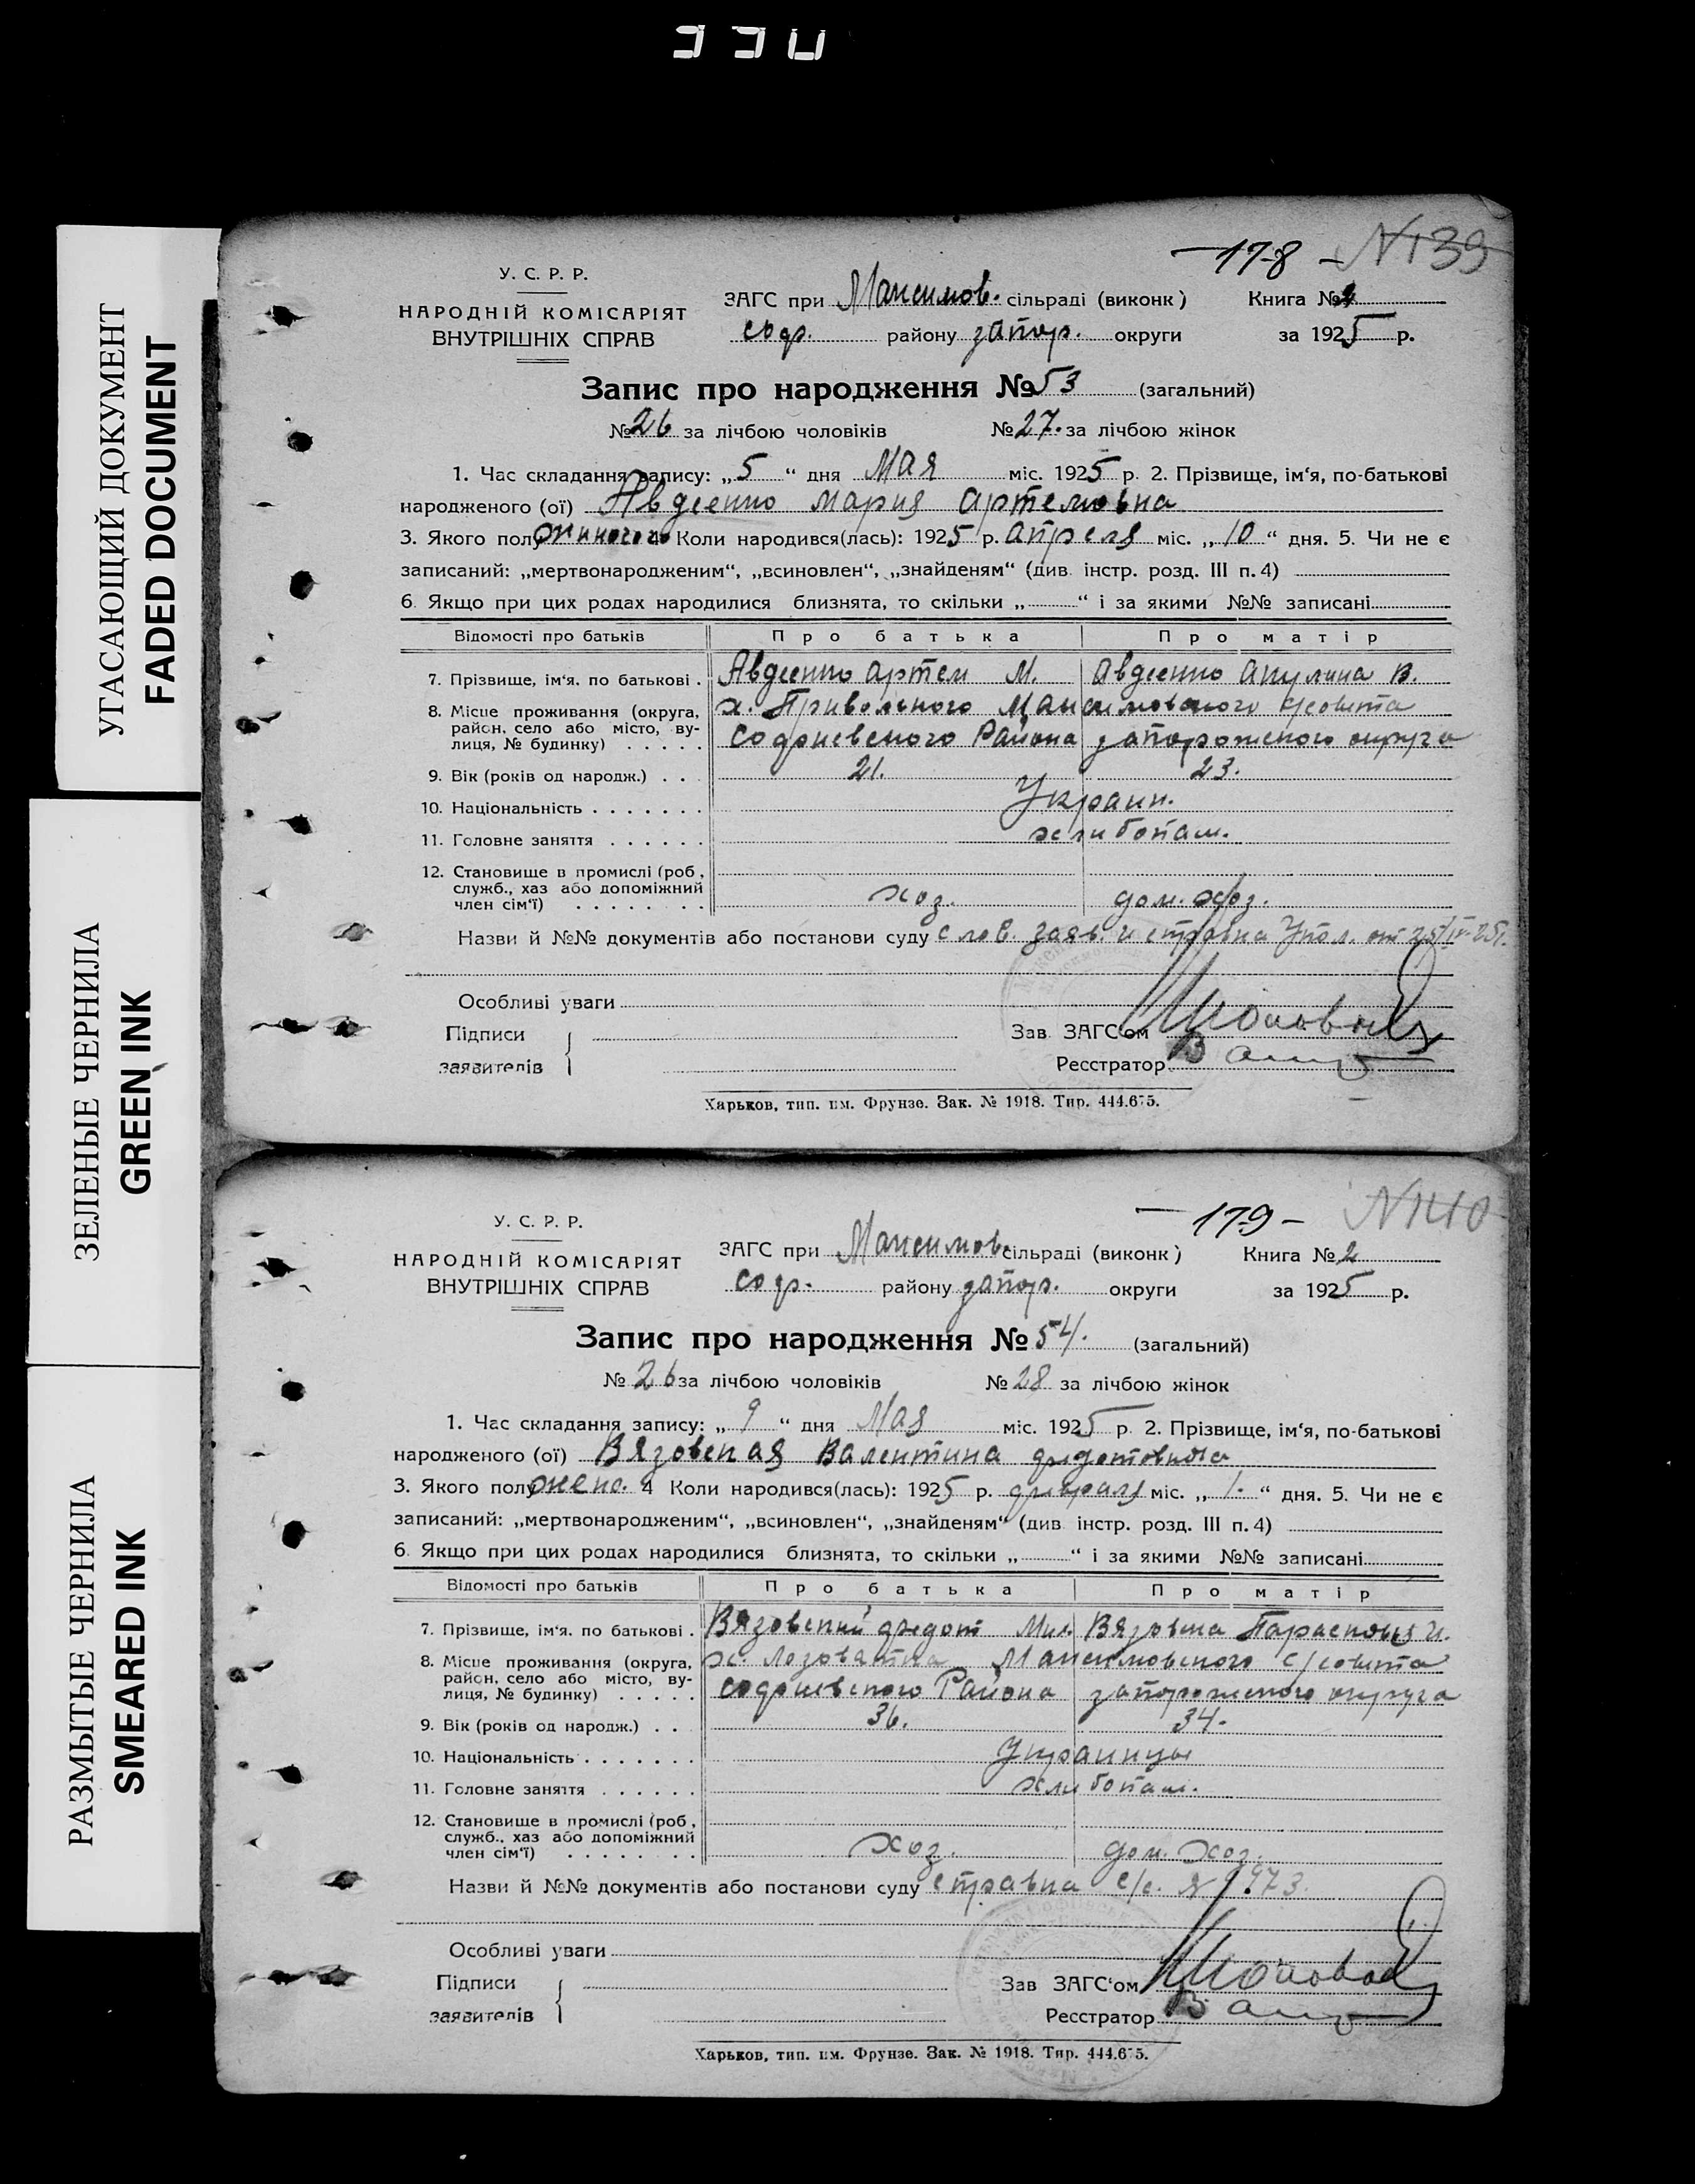 330
УГАСАЮЩИЙ ДОКУМЕНТ
FADED DOCUMENT
ЗЕЛЕНЫЕ ЧЕРНИЛА
GREEN INK
РАЗМЫТЫЕ ЧЕРНИЛА
SMEARED INK
— 178 — N139
У. С. Р. Р.
НАРОДНІЙ КОМІСАРІЯТ
ВНУТРІШНІХ СПРАВ
ЗАГС при Максимов. сільраді (виконк) Книга №
соф. району запор. округи за 1925 р.
Запис про народження № 53 (загальний)
№ 26 за лічбою чоловіків № 27. за лічбою жінок
1. Час складання запису: „5“ дня Мая міс. 1925 р. 2. Прізвище, ім‘я, по-батькові
народженого (ої) Авдеенко Мария Артемовна
3. Якого полу 4 Коли народився(лась): 1925 р. Апреля міс. „10“ дня. 5. Чи не є
записаний: „мертвонародженим“, „всиновлен“, „знайденям“ (див. інстр. розд. III п. 4)
6. Якщо при цих родах народилися близнята, то скільки „ “ і за якими №№ записані
Відомості про батьків Про батька Про матір
7. Прізвище, ім‘я. по батькові . Авдеенко Артем М. Авдеенко Акулина В.
8. Місце проживання (округа, х. Привольного Максимовского с/совета
район, село або місто, ву- Софиевского Района запорожского округа
лиця, № будинку) . . . . .
9. Вік (років од народж.) . . 21. 23.
10. Національність . . . . . . . Украин.
11. Головне заняття . . . . . . хлибопаш.
12. Становище в промислі (роб,
служб., хаз або допоміжний
член сім‘ї) . . . . . . . . хоз. дом. хоз.
Назви й №№ документів або постанови суду слов. заяв. и справка Упол. от 25/IV-25г.
Особливі уваги
Підписи
заявителів
Зав. ЗАГС‘ом
Реєстратор
Харьков, тип. им. Фрунзе. Зак. № 1918. Тир. 444.675.
— 179 — N140
У. С. Р. Р.
НАРОДНІЙ КОМІСАРІЯТ
ВНУТРІШНІХ СПРАВ
ЗАГС при Максимов. сільраді (виконк) Книга № 2
соф. району запор. округи за 1925 р.
Запис про народження № 54. (загальний)
№ 26 за лічбою чоловіків № 28 за лічбою жінок
1. Час складання запису: „9“ дня Мая міс. 1925 р. 2. Прізвище, ім‘я, по-батькові
народженого (ої) Вязовская Валентина Федотовна
3. Якого полу женс. 4 Коли народився(лась): 1925 р. февраля міс. „1.“ дня. 5. Чи не є
записаний: „мертвонародженим“, „всиновлен“, „знайденям“ (див. інстр. розд. III п. 4)
6. Якщо при цих родах народилися близнята, то скільки „ “ і за якими №№ записані
Відомості про батьків Про батька Про матір
7. Прізвище, ім‘я. по батькові . Вязовский Федот Мих. Вязовска Парасковья И.
8. Місце проживання (округа, х. Лозоватка Максимовского с/совета
район, село або місто, ву- софиевского Района запорожского округа
лиця, № будинку) . . . . .
9. Вік (років од народж.) . . 36. 34.
10. Національність . . . . . . . Украинцы
11. Головне заняття . . . . . . хлибопаш.
12. Становище в промислі (роб,
служб., хаз або допоміжний
член сім‘ї) . . . . . . . . хоз. дом. хоз.
Назви й №№ документів або постанови суду справка с/с. № 973.
Особливі уваги
Підписи
заявителів
Зав ЗАГС‘ом
Реєстратор
Харьков, тип. им. Фрунзе. Зак. № 1918. Тир. 444.675.